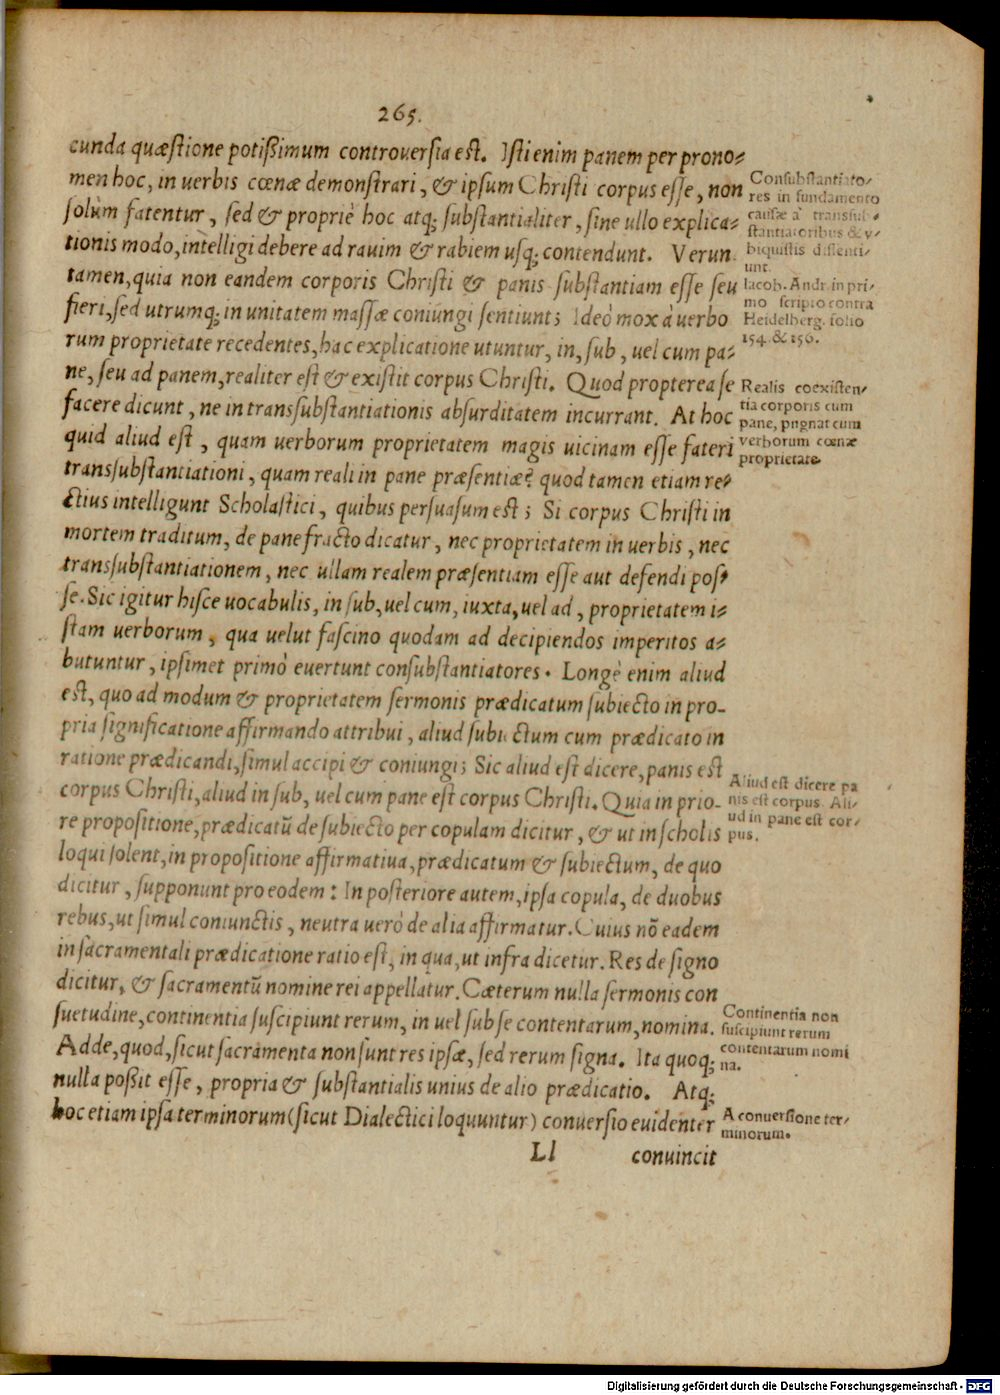 265.
cunda quæstione potißimum controversia est. Isti enim panem per prono-
men hoc, in uerbis cœnæ demonstrari, & ipsum Christi corpus esse, non
solùm fatentur, sed & propriè hoc atq; substantialiter, sine ullo explica-
tionis modo, intelligi debere ad rauim & rabiem usq; contendunt. Verun
tamen, quia non eandem corporis Christi & panis substantiam esse seu
fieri, sed utrumq; in unitatem massæ coniungi sentiunt; Ideò mox à uerbo
rum proprietate recedentes, hac explicatione utuntur, in, sub, uel cum pa-
ne, seu ad panem, realiter est & existit corpus Christi. Quod propterea se
facere dicunt, ne in transsubstantiationis absurditatem incurrant. At hoc
quid aliud est, quam uerborum proprietatem magis uicinam esse fateri
transsubstantiationi, quam reali in pane præsentiæ? quod tamen etiam re-
ctius intelligunt Scholastici, quibus persuasum est; Si corpus Christi in
mortem traditum, de pane fracto dicatur, nec proprietatem in uerbis, nec
transsubstantiationem, nec ullam realem præsentiam esse aut defendi pos-
se. Sic igitur hisce uocabulis, in sub, uel cum, iuxta, uel ad, proprietatem i-
stam uerborum, qua uelut fascino quodam ad decipiendos imperitos a-
butuntur, ipsimet primò euertunt consubstantiatores. Longè enim aliud
est, quo ad modum & proprietatem sermonis prædicatum subiecto in pro-
pria significatione affirmando attribui, aliud subiectum cum prædicato in
ratione prædicandi, simul accipi & coniungi; Sic aliud est dicere, panis est
corpus Christi, aliud in sub, uel cum pane est corpus Christi. Quia in prio-
re propositione, prædicatū de subiecto per copulam dicitur, & ut in scholis
loqui solent, in propositione affirmatiua, prædicatum & subiectum, de quo
dicitur, supponunt pro eodem: In posteriore autem, ipsa copula, de duobus
rebus, ut simul coniunctis, neutra uerò de alia affirmatur. Cuius nō eadem
in sacramentali prædicatione ratio est, in qua, ut infra dicetur. Res de signo
dicitur, & sacramentū nomine rei appellatur. Cæterum nulla sermonis con
suetudine, continentia suscipiunt rerum, in uel sub se contentarum, nomina.
Adde, quod, sicut sacramenta non sunt res ipsæ, sed rerum signa. Ita quoq;
nulla poßit esse, propria & substantialis unius de alio prædicatio. Atq;
hoc etiam ipsa terminorum (sicut Dialectici loquuntur) conuersio euidenter
Ll conuincit
Consubstantiato-
res in fundamento
causæ à transsub-
stantiatoribus & v-
biquistis dissenti-
unt.
Iacob. Andr. in pri-
mo scripto contra
Heidelberg. folio
154. & 156.
Realis coexisten-
tia corporis cum
pane, pugnat cum
verborum cœnæ
proprietate.
Aliud est dicere pa
nis est corpus. Ali-
ud in pane est cor-
pus.
Continentia non
suscipiunt rerum
contentarum nomi
na.
A conuersione ter-
minorum.
Digitalisierung gefördert durch die Deutsche Forschungsgemeinschaft - DFG